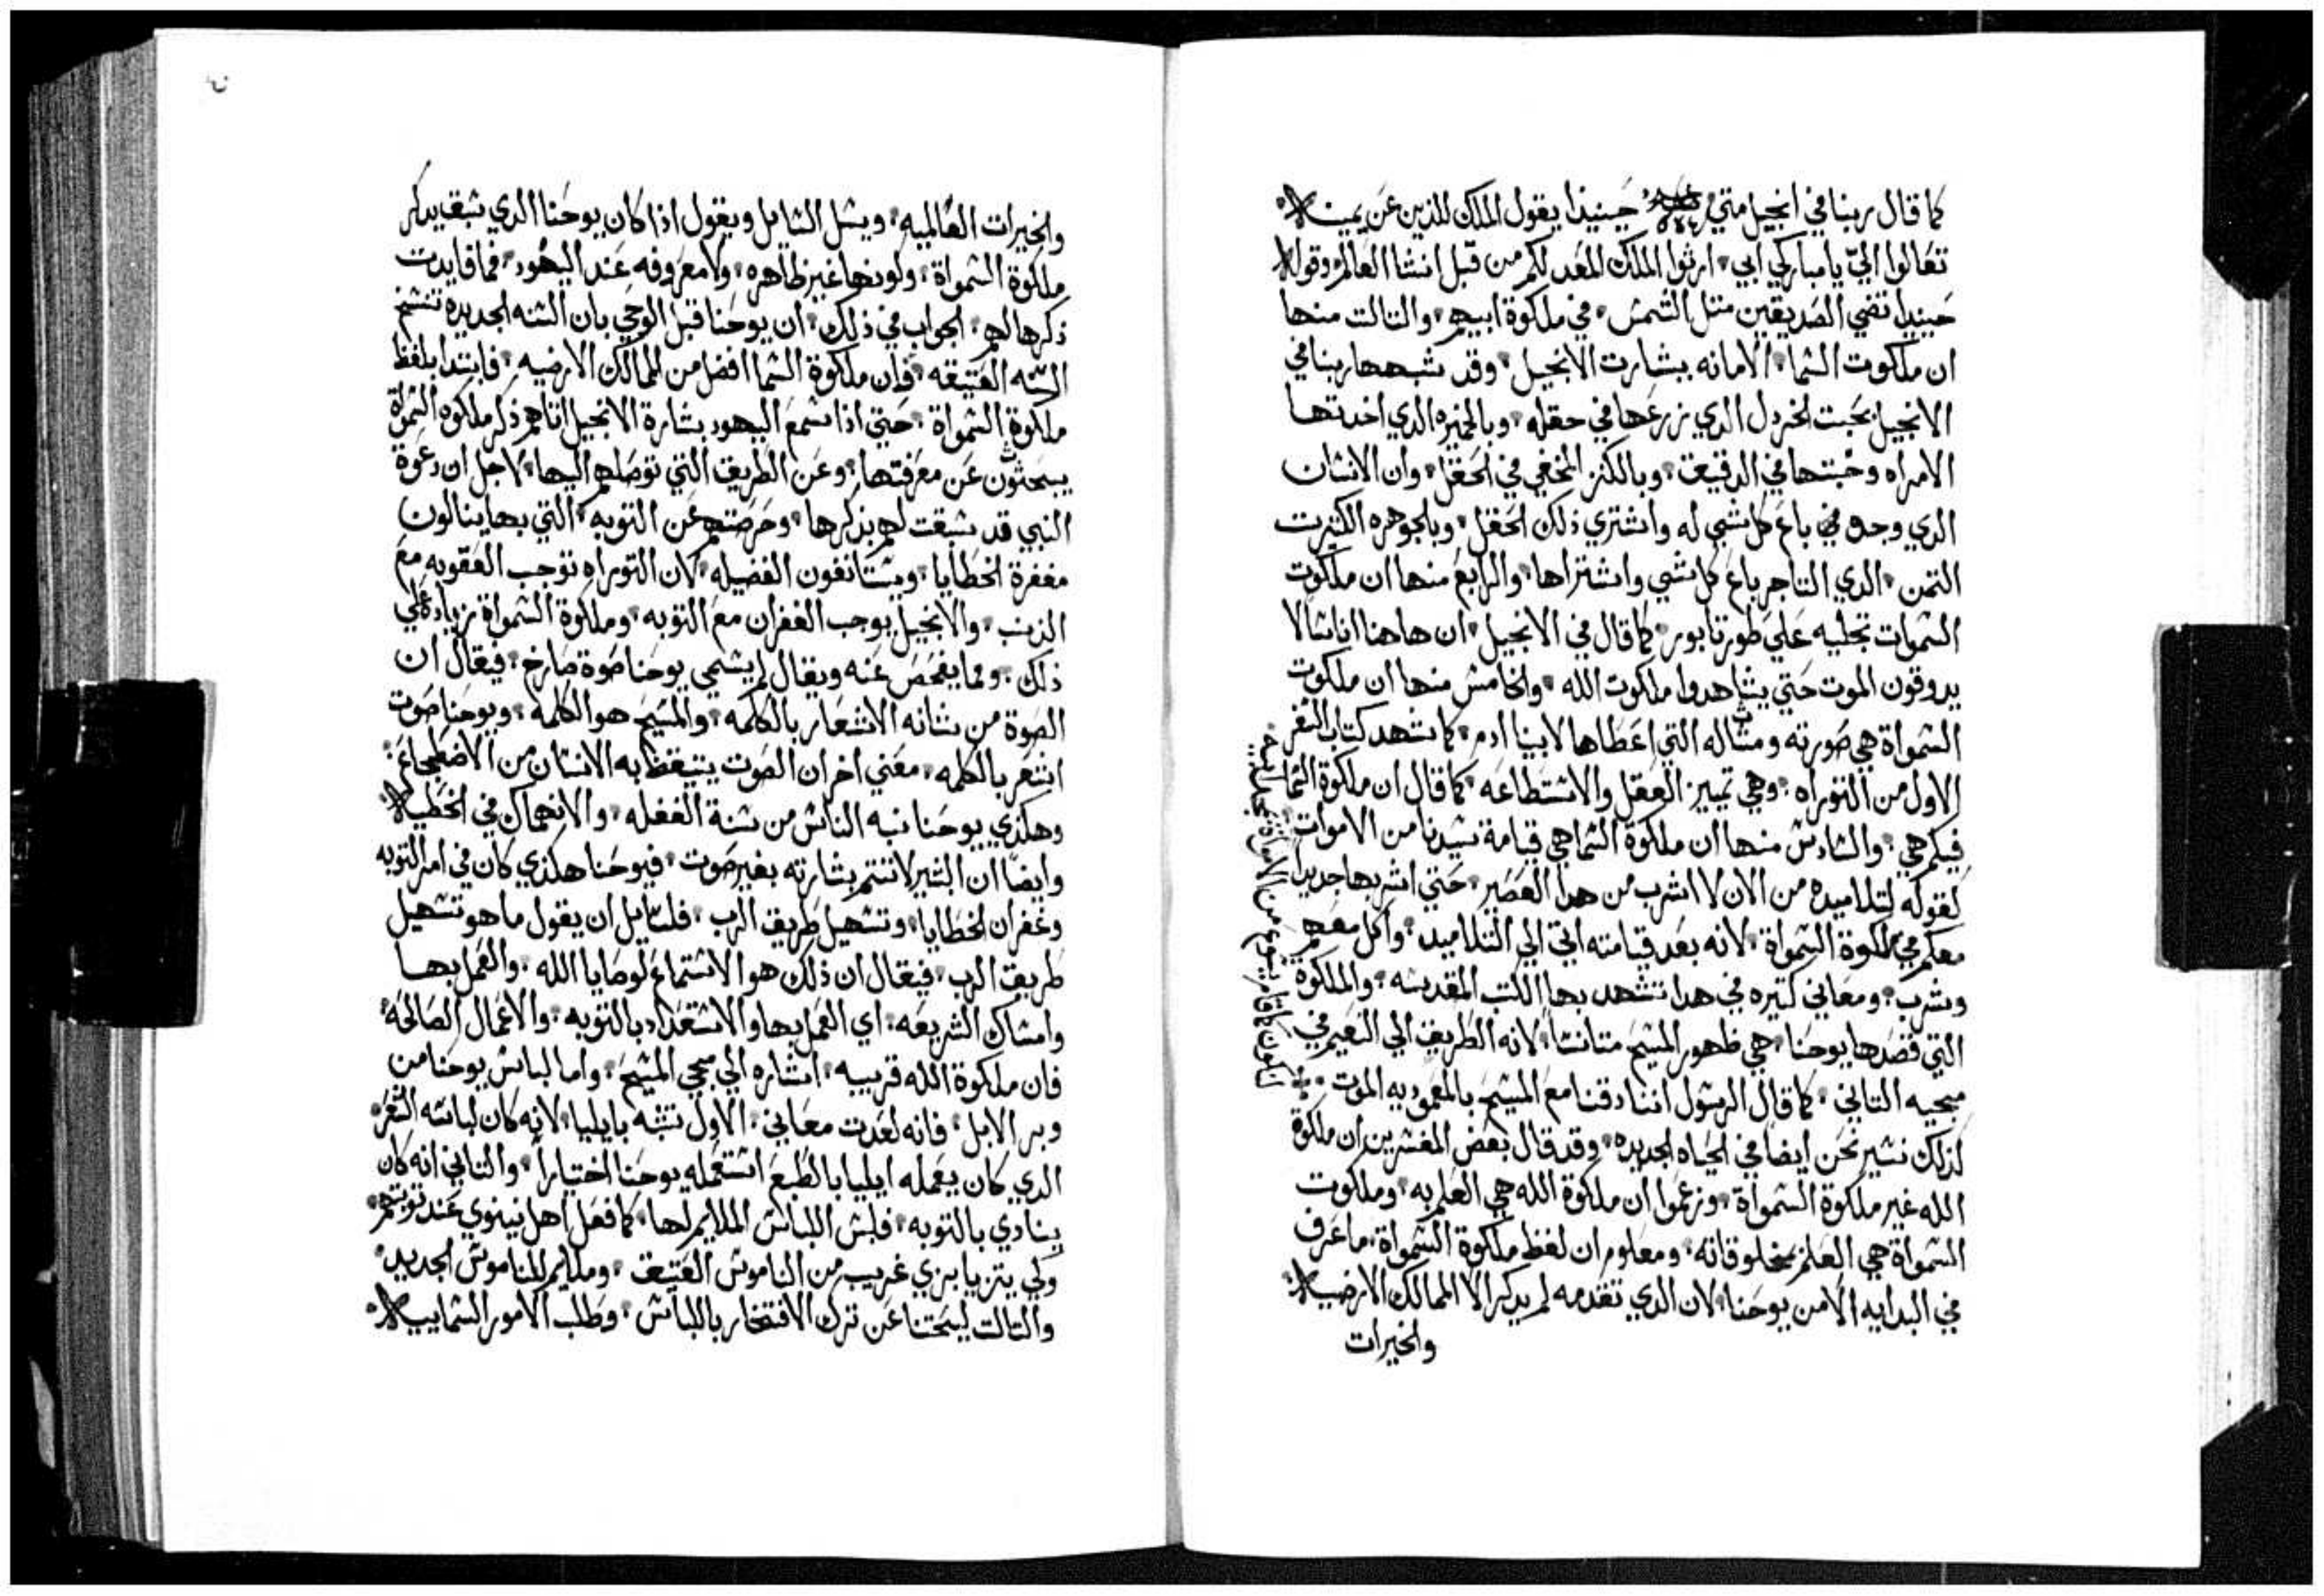 كما قال ربنا في انجيل متي حينيذا يقول الملك للذين عن يمينه
تعالوا اليّ يا مباركي ابي ارثوا الملك المعد لكم من قبل انشا العالم وقوله
حينيدا تضي الصديقين متل الشمس في ملكوة ابيهم والتالت منها
ان ملكوت الشما الامانه ببشارت الانجيل وقد شبهها ربنا في
الانجيل بحبت الخردل الدي زرعها في حقله وبالخميره الدي اخدتها
الامراه وخبتها في الدقيق وبالكنز المخفي في الحقل وان الانشان
الدي وجده باع كل شي له واشتري ذلك الحقل وبالجوهره الكتيرت
التمن الدي التاجر باع كل شي واشتراها والرابع منها ان ملكوت
الشموات تجليه علي طور تابور كما قال في الانجيل ان هاهنا اناشا لا
يدوقون الموت حتي يشاهدوا ملكوت الله والخامش منها ان ملكوت
الشمواة هي صورته ومثاله التي اعطاها لابينا ادم كما شهد كتاب الشفر
الاول من التوراه وهي تمييز العقل والاشتطاعه كما قال ان ملكوة الشما
فيكم هي والشادش منها ان ملكوة الشما هي قيامة شيدنا من الاموات
لقوله لتلاميده من الان لا اشرب من هدا العصير حتي اشربها جديدا
معكم في ملكوة الشمواة لانه بعد قيامته اتي الي التلاميد واكل معهم
وشرب ومعاني كتيره في هدا تشهد بها الكتب المقدشه والملكوة
التي قصدها يوحنا هي ظهور المشيح متانشا لانه الطريق الي النعيم في
مجيه التاني كما قال الرشول اننا دفنا مع المشيح بالمعموديه الموت
لذلك نشير نحن ايضا في الحياه الجديده وقد قال بعض المفشرين ان ملكوة
الله غير ملكوة الشمواة وزعموا ان ملكوة الله هي العلم به وملكوت
الشمواة هي العلم بمخلوقاته ومعلوم ان لفظ ملكوة الشمواة ما عرف
في البدايه الا من يوحنا لان الدي تقدمه لم يدكر الا الممالك الارضيه
والخيرات
والخيرات العالميه ويشل الشايل ويقول اذا كان يوحنا الدي شبق يدكر
ملكوة الشمواة ولونها غير ظاهره ولا معروفه عند اليهود فما فايدت
ذكرها لهم الجواب في ذلك ان يوحنا قبل الوحي بان الشنه الجديده تنشخ
الشنه العتيقه وان ملكوة الشما افضل من الممالك الارضيه فابتدا بلفظ
ملكوة الشمواة حتي اذا شمع اليهود بشارة الانجيل اتاهم ذكر ملكوه الشمواة
يبحثون عن معرفتها وعن الطريق التي توصلهم اليها لاجل ان دعوة
النبي قد شبقت لهم بذكرها وحرضتهم عن التوبه التي بها ينالون
مغفرة الخطايا ويشتانفون الفضيله لان التوراه توجب العقوبه مع
الذنب والانجيل يوجب الغفران مع التوبه وملكوة الشمواة زياده علي
ذلك ومما يفحص عنه ويقال لم يشمي يوحنا صوة صارخ فيقال ان
الصوة من شانه الاشعار بالكلمه والمشيح هو الكلمه ويوحنا صوت
اشعر بالكلمه معني اخر ان الصوت يتيقظ به الانشان من الاضطجاع
وهكذي يوحنا نبه الناش من شنة الغفله والانهماك في الخطيه
وايضًا ان البشير لا تتم بشارته بغير صوت فيوحنا هكذي كان في امر التوبه
وغفران الخطايا وتشهيل طريق الرب فلشايل ان يقول ما هو تشهيل
طريق الرب فيقال ان ذلك هو الاشتماع لوصايا الله والعمل بها
وامشاك الشريعه اي العمل بها والاشتعداد بالتوبه والاعمال الصالحه
فان ملكوة الله قريبه اشاره الي مجي المشيح واما لباش يوحنا من
وبر الابل فانه لعدت معاني الاول تشبه بايليا لانه كان لباشه الشعر
الدي كان يعمله ايليا بالطبع اشتعمله يوحنا اختياراً والتاني انه كان
ينادي بالتوبه فلبش اللباش الملايم لها كما فعل اهل نينوي عند توبتهم
ولكي يتزيا بزي غريب من الناموش العتيق وملايم للناموش الجديد
والتالت ليحتنا عن ترك الافتخار باللباش وطلب الامور الشماييه